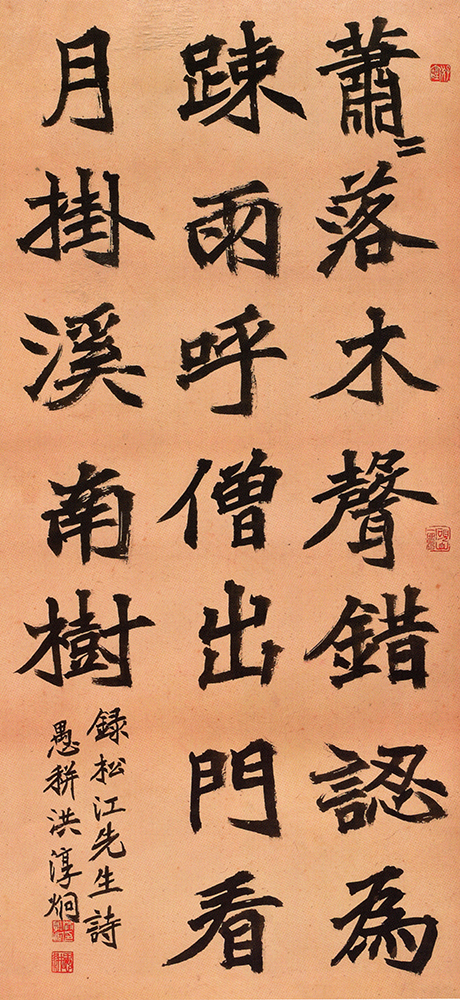 蕭〻落木聲錯認為
踈雨呼僧出門看
月掛溪南樹
録松江先生詩
愚耕洪淳炯